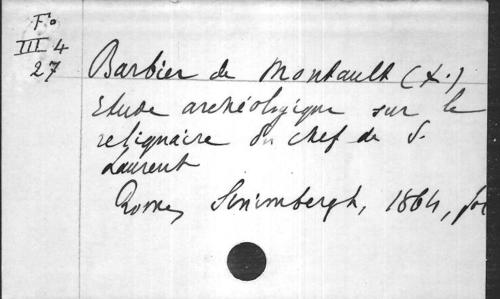 F°
III 4
27
Barbier de Montault (X.)
Etude archéologique sur le
reliquaire du chef de S.
Laurent
Rome, Sinimbergh, 1864, fol